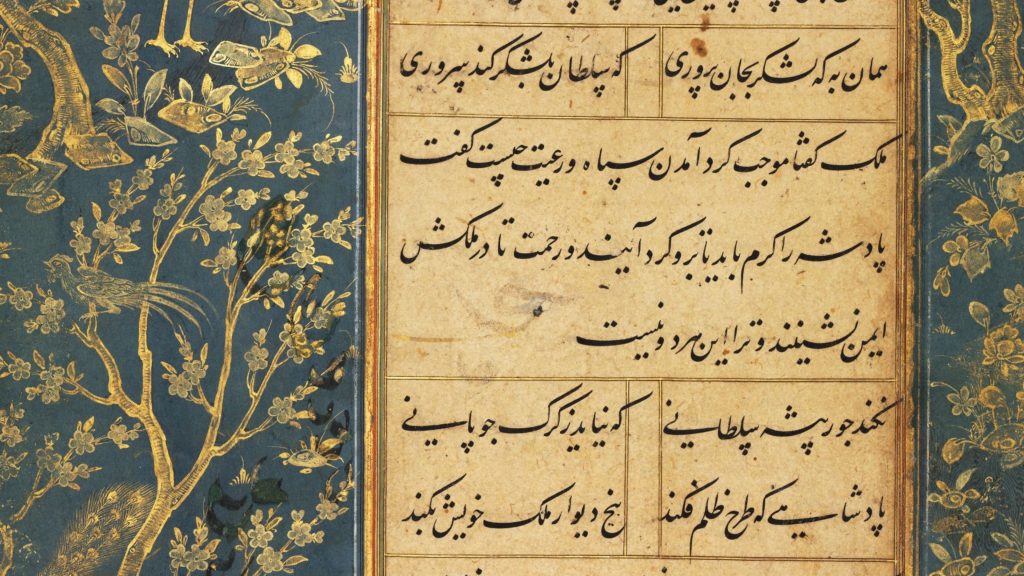 همان به که لشکر بجان پروری که سلطان بلشکر کند سروری
ملک گفتا موجب کرد آمدن سپاه و رعیت چیست گفت
پادشه را کرم باید تا برو کرد آیند و رحمت تا در ملکش
ایمن نشینند و ترا این هر دو نیست
نکند جور پیشه سلطانی که نیاید ز کرک چوپانی
پادشاهی که طرح ظلم فکند بیخ دیوار ملک خویش بکند